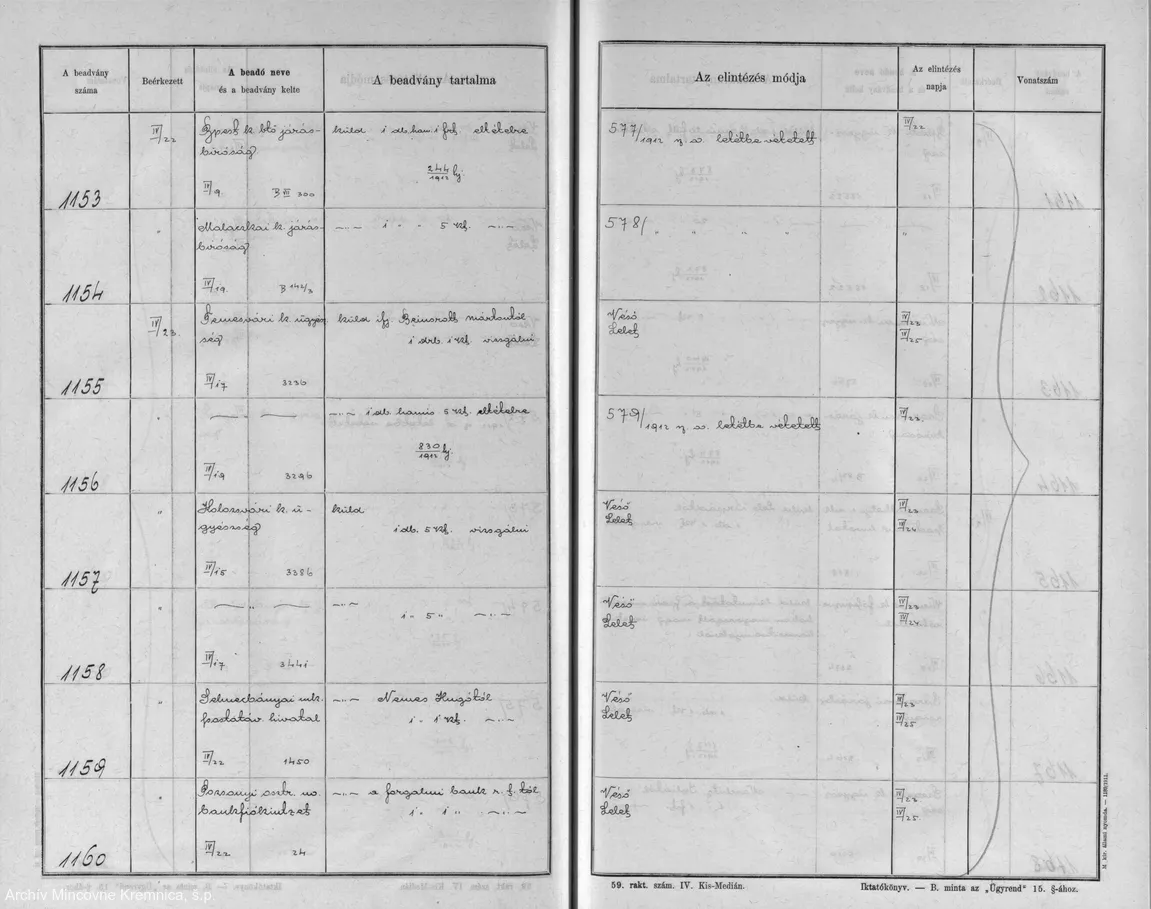 A beadvány száma
Beérkezett
A beadó neve és a beadvány kelte
A beadvány tartalma
Az elintézés módja
Az elintézés napja
Vonatszám
1153
IV/22
k. járás-
bíróság
IV/9. B III 300
küld 1 db. ham. 1 frt. elítélve
244/1912 bj.
577/1912 n. sz. letétbe vétetett
IV/22
1154
"
Malaczkai k. járás-
bíróság
IV/19. B 142/3
—„— 1 " " 5 kf. —„—
578/ " " " "
1155
IV/23.
Temesvári k. ügyész
ség
IV/17 3236
küld ifj.
1 drb. 1 kf. vizsgálni
Véső
Lelet
IV/23
IV/25
1156
"
—— " ——
IV/19 3296
—„— 1 db. hamis 5 kf. elítélve
830/1912 bj.
579/1912 n. sz. letétbe vétetett
IV/23.
1157
"
Kolozsvári k. ü-
gyészség
IV/15 3386
küld
1 db. 5 kf. vizsgálni
Véső
Lelet
IV/23
IV/24
1158
"
—— " ——
IV/17 3441
—„—
1 " 5 " —„—
Véső
Lelet
IV/23
IV/24
1159
"
Selmecbányai mk.
postatáv. hivatal
IV/22 1450
—„— Nemes Hugótól
1 " 1 kf. —„—
Véső
Lelet
IV/23
IV/25
1160
"
Pozsonyi osztr. m.
bankfiókintézet
IV/22 24
—„— a forgalmi bank r. t. tól
1 " 1 " —„—
Véső
Lelet
IV/23
IV/25
59. rakt. szám. IV. Kis-Medián.
Iktatókönyv. — B. minta az „Ügyrend" 15. §-ához.
M. kir. állami nyomda. —
Archív Mincovne Kremnica, š.p.